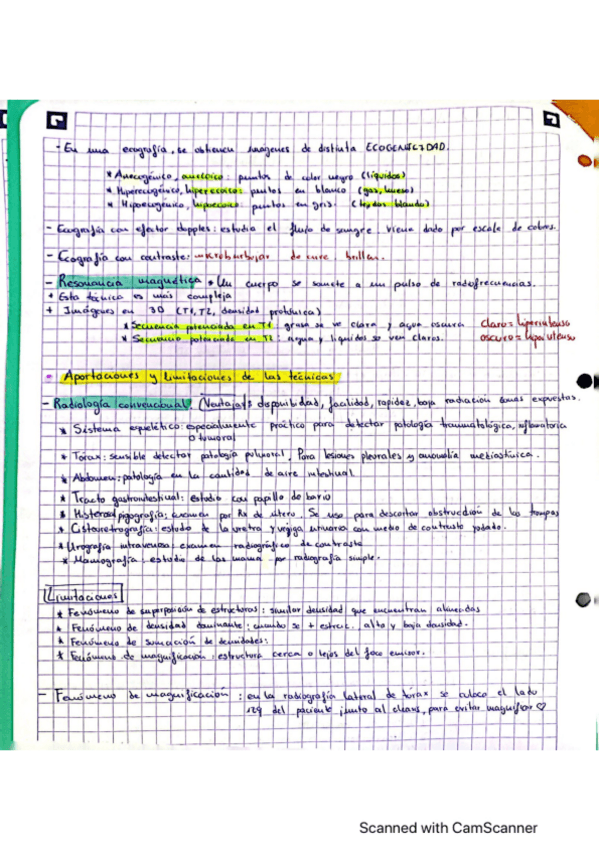 - En una ecografía, se obtienen imágenes de distinta ECOGENICIDAD.
* Anecogénico, anecoico: puntos de color negro (líquidos)
* Hiperecogénico, hiperecoico: puntos en blanco (gas, hueso)
* Hipoecogénico, hipoecoico: puntos en gris. (tejidos blando)
- Ecografía con efector doppler: estudia el flujo de sangre. Viene dado por escala de colores.
- Ecografía con contraste: microburbujas de aire brillan.
- Resonancia magnética * Un cuerpo se somete a un pulso de radiofrecuencias.
+ Esta técnica es más compleja
+ Imágenes en 3D (T1, T2, densidad protónica)
* Secuencia potenciada en T1: grasa se ve clara y agua oscura claro = hiperintenso
* Secuencia potenciada en T2: agua y líquidos se ven claros. oscuro = hipointenso
- Aportaciones y limitaciones de las técnicas
- Radiología convencional. (Ventajas): disponibilidad, facilidad, rapidez, baja radiación zonas expuestas.
* Sistema esquelético: especialmente práctico para detectar patología traumatológica, inflamatoria
o tumoral
* Tórax: sensible detectar patología pulmonar. Para lesiones pleurales y anomalía mediastínica.
* Abdomen: patología en la cantidad de aire intestinal
* Tracto gastrointestinal: estudio con papilla de bario
* examen por Rx de útero. Se usa para descartar obstrucción de las trompas
* Cistouretrografía: estudio de la uretra y vejiga urinaria con medio de contraste yodado.
* Urografía intravenosa: examen radiográfico de contraste
* Mamografía: estudio de las mama por radiografía simple.
Limitaciones
* Fenómeno de superposición de estructuras: similar densidad que encuentran alineadas
* Fenómeno de densidad dominante: cuando se + estruc. alto y baja densidad.
* Fenómeno de sumación de densidades:
* Fenómeno de magnificación: estructura cerca o lejos del foco emisor.
- Fenómeno de magnificación: en la radiografía lateral de tórax se coloca el lado
izq del paciente junto al para evitar magnificar ♡
Scanned with CamScanner